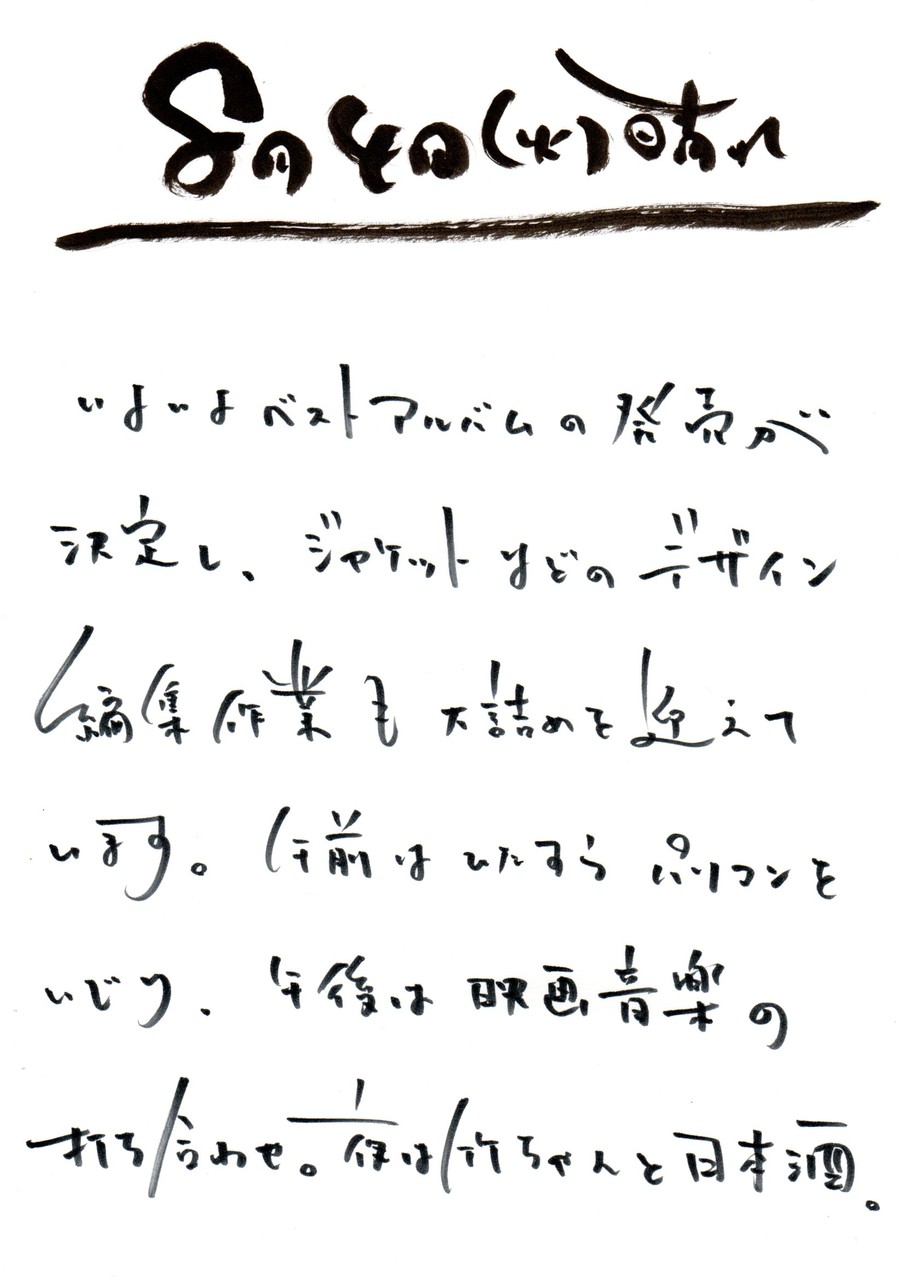 8月4日(火)晴れ
いよいよベストアルバムの発売が
決定し、ジャケットなどのデザイン
編集作業も大詰めを迎えて
います。午前はひたすらパソコンを
いじり、午後は映画音楽の
打ち合わせ。夜は竹ちゃんと日本酒。